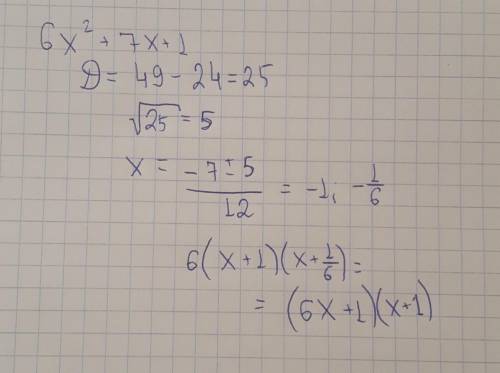 6x² + 7x + 1
D = 49 - 24 = 25
√25 = 5
x = (-7 ± 5)/12 = -1; -1/6
6(x + 1)(x + 1/6) =
= (6x + 1)(x + 1)